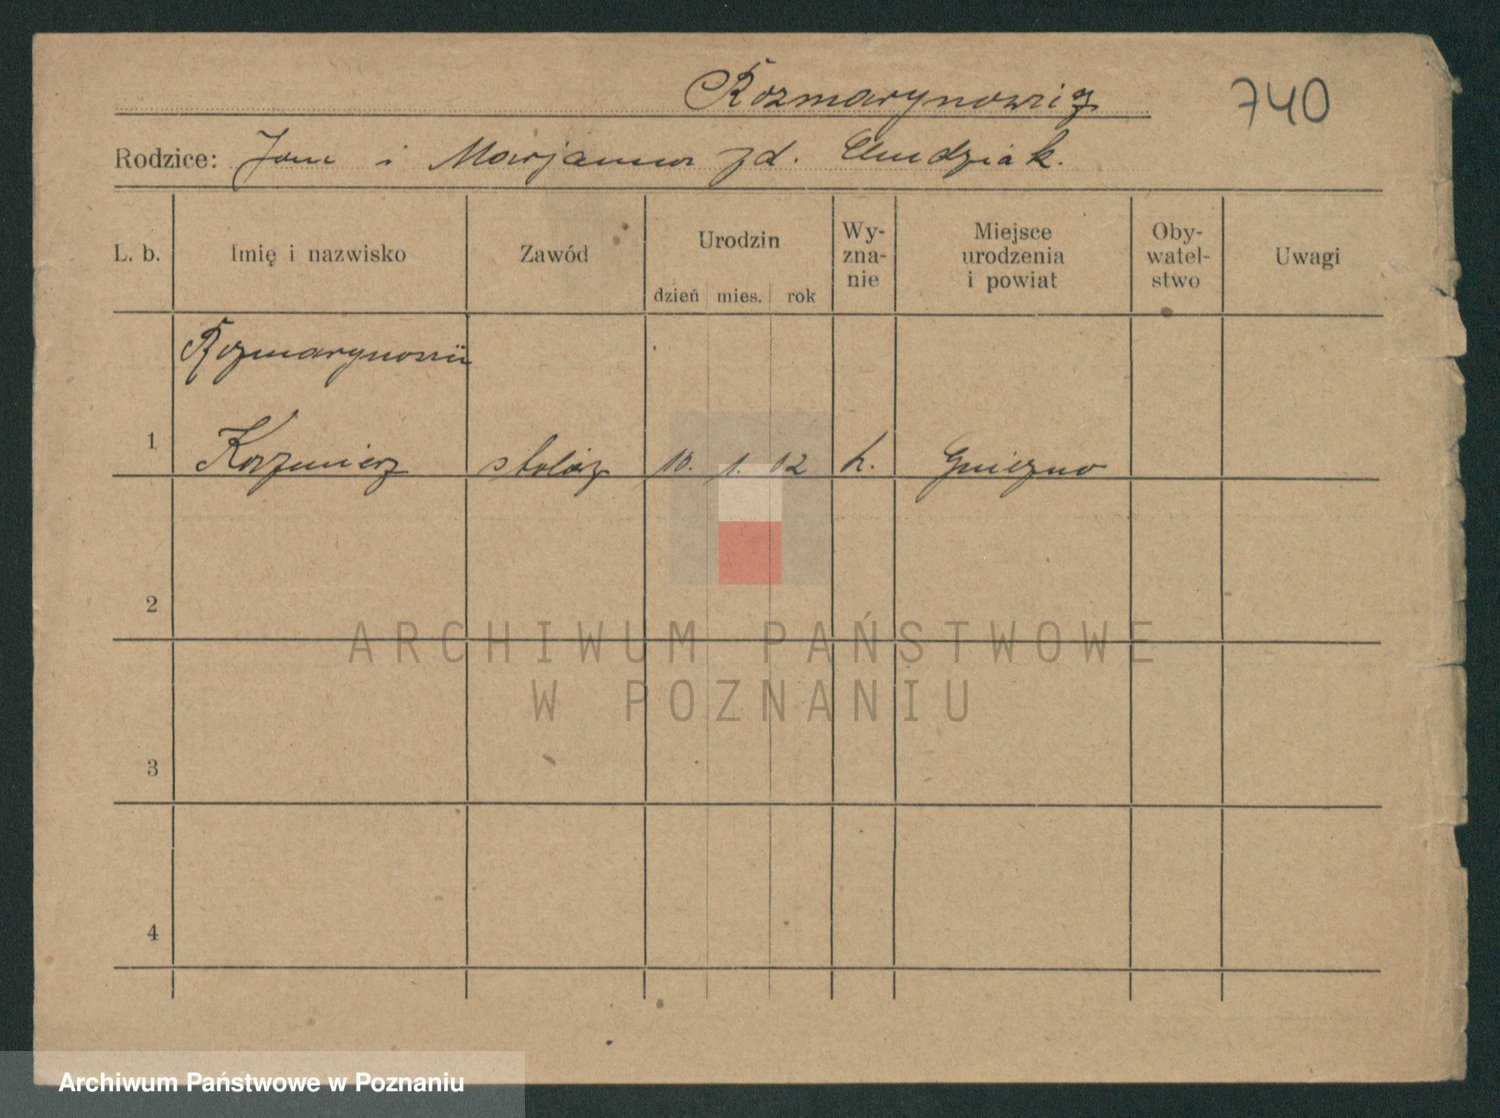 Rozmarynowicz 740
Rodzice: Jan i Marjanna zd. Chudziak.
L. b. Imię i nazwisko Zawód Urodzin dzień mies. rok Wy- zna- nie Miejsce urodzenia i powiat Oby- watel- stwo Uwagi
Rozmarynowicz
1 Kazimierz stolarz 10. 1. 12 k. Gniezno
2
ARCHIWUM PAŃSTWOWE
W POZNANIU
3
4
Archiwum Państwowe w Poznaniu